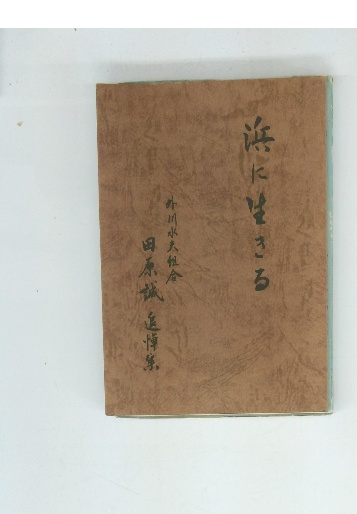 浜に生きる
外川水夫組合
田原誠 追悼集